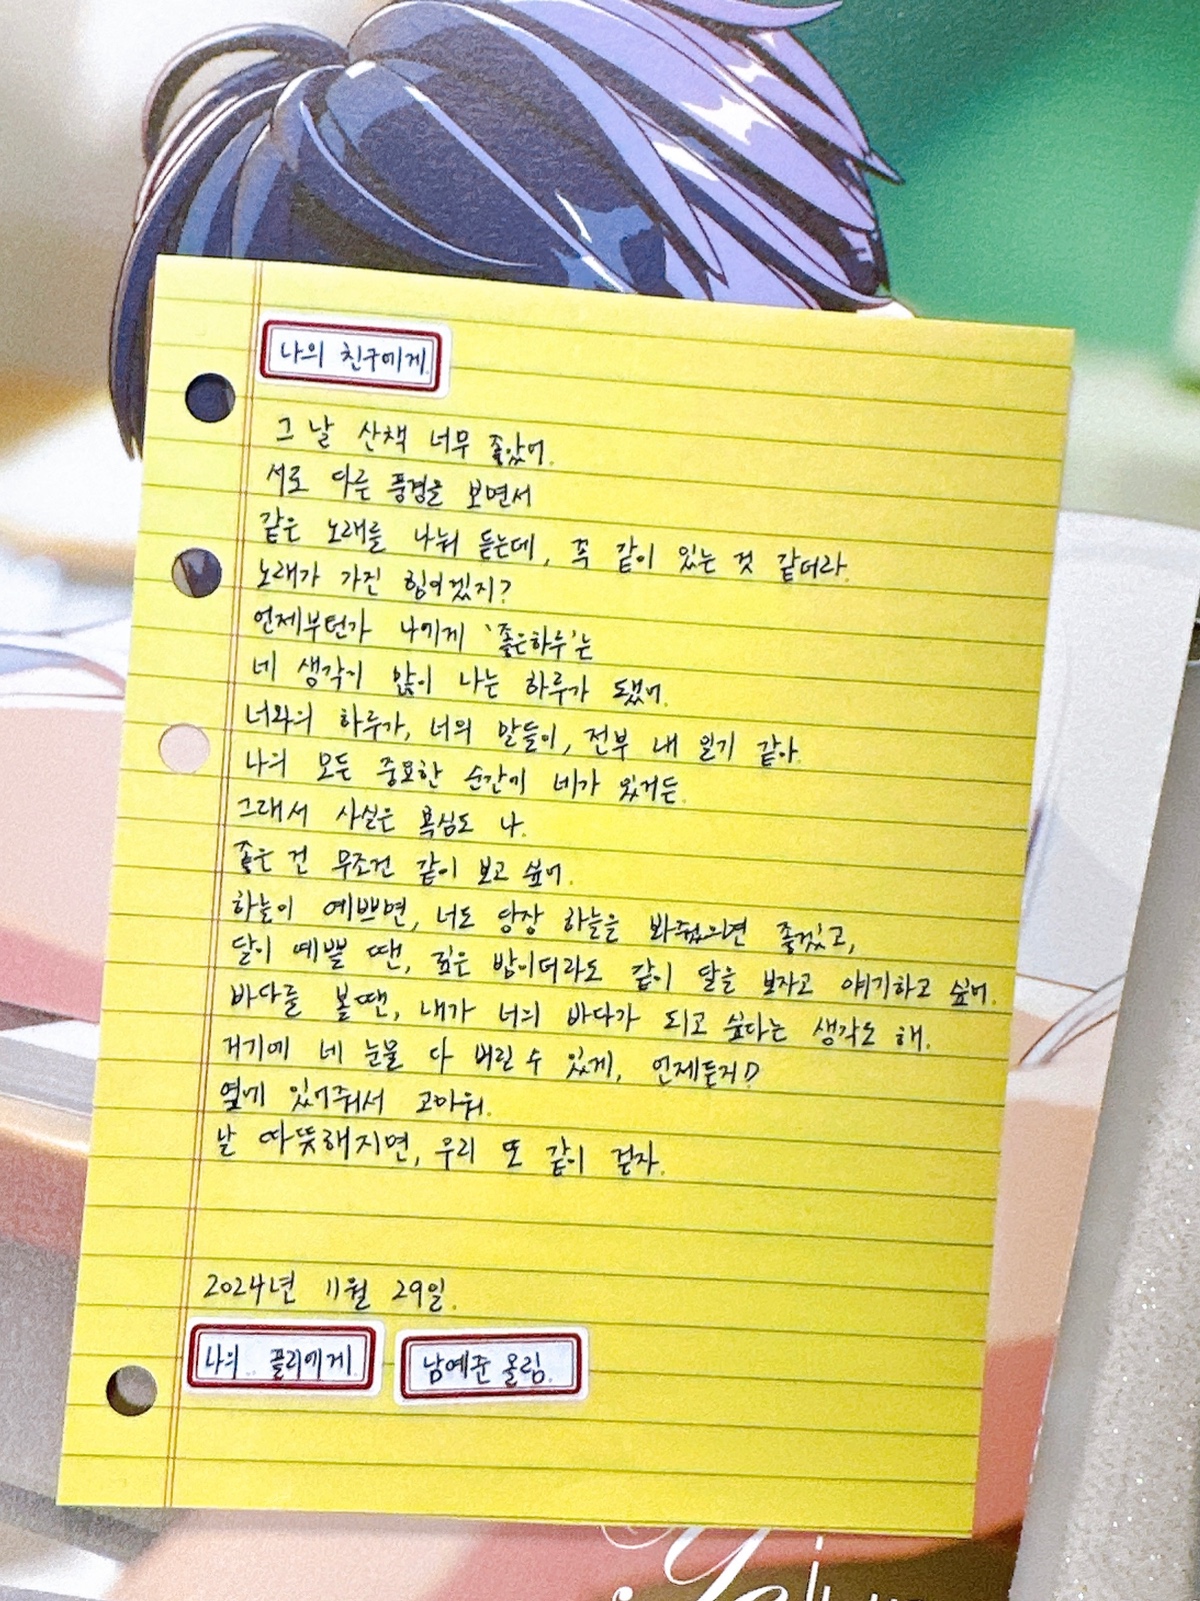 나의 친구에게.
그 날 산책 너무 좋았어.
서로 다른 풍경을 보면서
같은 노래를 나눠 듣는데, 꼭 같이 있는 것 같더라.
노래가 가진 힘이겠지?
언제부턴가 나에게 '좋은하루'는
네 생각이 많이 나는 하루가 됐어.
너와의 하루가, 너의 말들이, 전부 내 일기 같아.
나의 모든 중요한 순간에 네가 있거든.
그래서 사실은 욕심도 나.
좋은 건 무조건 같이 보고 싶어.
하늘이 예쁘면, 너도 당장 하늘을 봐줬으면 좋겠고,
달이 예쁠 땐, 깊은 밤이더라도 같이 달을 보자고 얘기하고 싶어.
바다를 볼땐, 내가 너의 바다가 되고 싶다는 생각도 해.
거기에 네 눈물 다 버릴 수 있게, 언제든지
옆에 있어줘서 고마워.
날 따뜻해지면, 우리 또 같이 걷자.
2024년 11월 29일.
나의 플리에게. 남예준 올림.